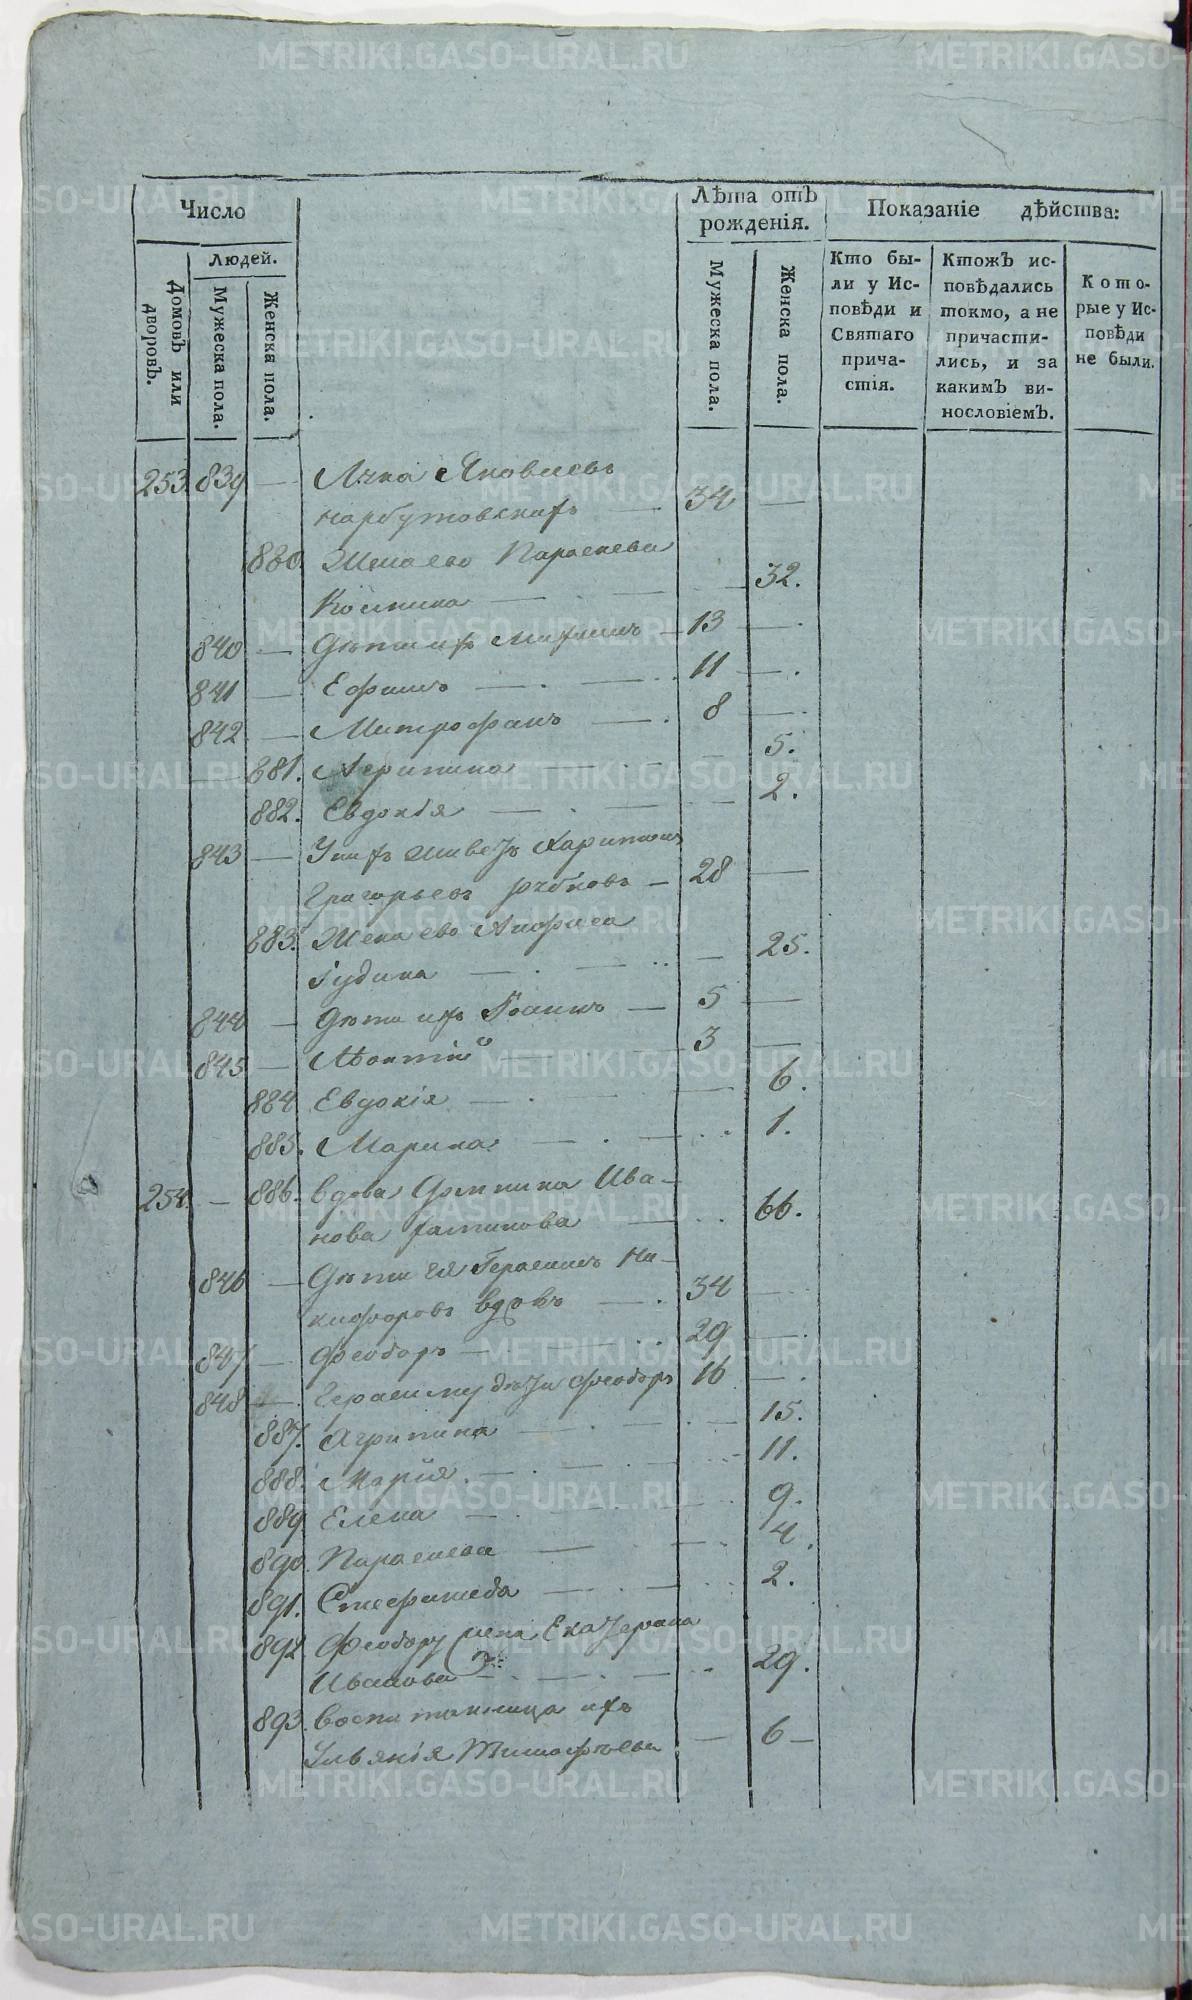 Число
Лѣта отъ
рожденія.
Показаніе дѣйства:
Людей.
Домовъ или
дворовъ.
Мужеска пола.
Женска пола.
Мужеска пола.
Женска пола.
Кто бы-
ли у Ис-
повѣди и
Святаго
прича-
стія.
Ктожъ ис-
повѣдались
токмо, а не
причасти-
лись, и за
какимъ ви-
нословіемъ.
Кото-
рые у Ис-
повѣди
не были.
253. 839 — Лука Яковлевъ
— 34 —
880. Жена ево Параскева
Космина — 32.
840 — Дѣти ихъ — 13 —
841 — Ефимъ — 11 —
842 — Митрофанъ — 8 —
881. Агрипина — 5.
882. Евдокія — 2.
843 — У нихъ живетъ Харитонъ
Григорьевъ — 28 —
883. Жена ево Анфиса
Іудина — 25.
844 — Дѣти ихъ Іоаннъ — 5 —
845 — Лѣонтій — 3 —
884. Евдокія — 6.
885. Марина — 1.
254. — 886. вдова Домнина Ива-
нова — 66.
846 — Дѣти ея Герасимъ Ни-
кифоровъ вдовъ — 34 —
847 — Феодоръ — 29 —
848 — Герасиму дѣти Феодоръ 16 —
887. Агрипина — 15.
888. Марія — 11.
889 Елена — 9.
890. Параскева — 4.
891. Степанида — 2.
892 Феодору жена Екатерина
Иванова — 29.
893. воспитанница ихъ
Ульянія Тимофѣева — 6 —
METRIKI.GASO-URAL.RU